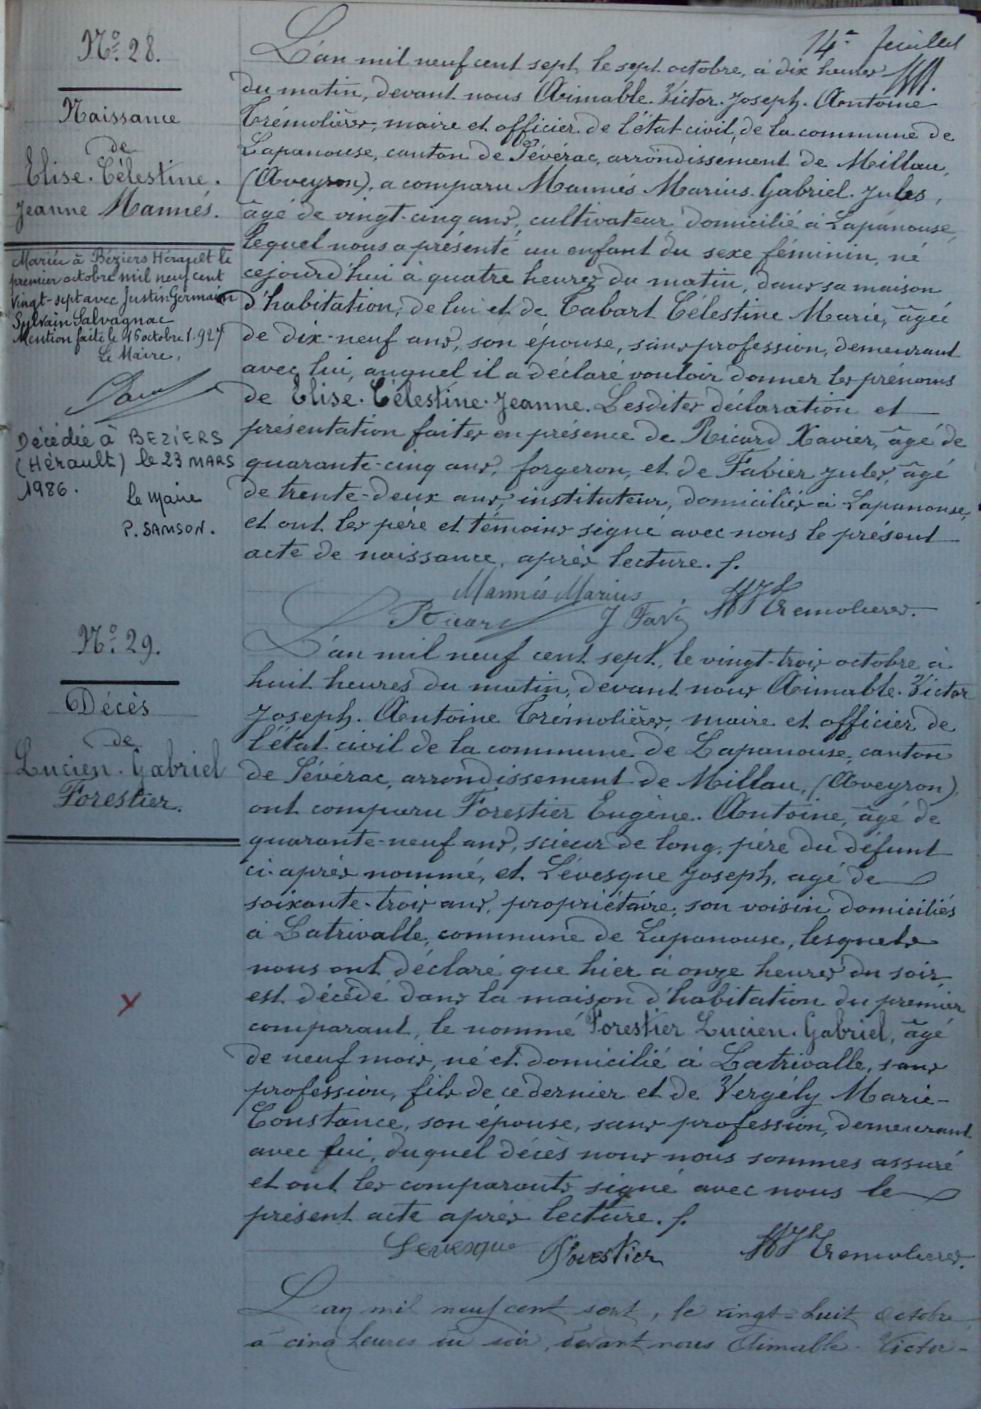 14e feuillet
No. 28.
Naissance
de
Elise. Célestine.
Jeanne Mannés.
Mariée à Béziers Hérault le
premier octobre mil neuf cent
vingt-sept avec Justin Germain
Sylvain Salvagnac
Mention faite le 16 octobre 1.927
Le Maire,
Décédée à BEZIERS
(Hérault) le 23 MARS
1986.
le Maire
P. SAMSON.
L'an mil neuf cent sept, le sept octobre, à dix heures
du matin, devant nous Aimable. Victor. Joseph. Antoine
Trémolières, maire et officier de l'état civil, de la commune de
Lapanouse, canton de Sévérac, arrondissement de Millau,
(Aveyron), a comparu Mannés Marius. Gabriel. Jules,
âgé de vingt-cinq ans, cultivateur domicilié à Lapanouse,
lequel nous a présenté un enfant du sexe féminin, né
cejourd'hui à quatre heures du matin, dans sa maison
d'habitation, de lui et de Cabart Célestine Marie, âgée
de dix-neuf ans, son épouse, sans profession, demeurant
avec lui, auquel il a déclaré vouloir donner les prénoms
de Elise. Célestine. Jeanne. Lesdites déclaration et
présentation faites en présence de Ricard Xavier, âgé de
quarante-cinq ans, forgeron, et de Favier Jules, âgé
de trente-deux ans, instituteur, domiciliés à Lapanouse,
et ont les père et témoins signé avec nous le présent
acte de naissance, après lecture. /.
Mannés Marius
Ricard J Favier Tremolieres.
No. 29.
Décès
de
Lucien. Gabriel
Forestier.
L'an mil neuf cent sept, le vingt-trois octobre à
huit heures du matin, devant nous Aimable. Victor
Joseph. Antoine Trémolières, maire et officier de
l'état civil de la commune de Lapanouse, canton
de Sévérac, arrondissement de Millau, (Aveyron),
ont comparu Forestier Eugène. Antoine, âgé de
quarante-neuf ans, scieur de long, père du défunt
ci-après nommé, et Lévesque Joseph, agé de
soixante-trois ans, propriétaire, son voisin domiciliés
à Latrivalle, commune de Lapanouse, lesquels
nous ont déclaré que hier à onze heures du soir
est décédé dans la maison d'habitation du premier
comparant, le nommé Forestier Lucien. Gabriel, âgé
de neuf mois, né et domicilié à Latrivalle, sans
profession, fils de ce dernier et de Vergély Marie-
Constance, son épouse, sans profession, demeurant
avec lui, duquel décès nous nous sommes assuré
et ont les comparants signé avec nous le
présent acte après lecture. /.
Levesque Forestier Tremolieres.
L'an mil neuf cent sept, le vingt-huit octobre
à cinq heures du soir, devant nous Aimable. Victor-